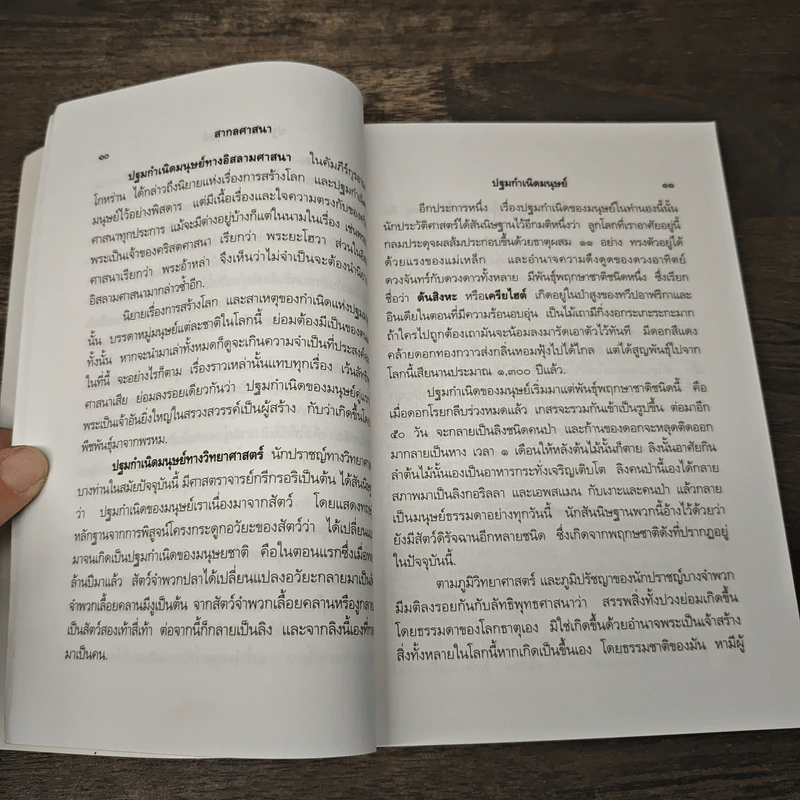 สากลศาสนา
๑๐
ปฐมกำเนิดมนุษย์ทางอิสลามศาสนา ในคัมภีร์กุรอาน
โกหร่าน ได้กล่าวถึงนิยายแห่งเรื่องการสร้างโลก และปฐมกำเนิด
มนุษย์ไว้อย่างพิสดาร แต่มีเนื้อเรื่องและใจความตรงกับของ
ศาสนาทุกประการ แม้จะมีต่างอยู่บ้างก็แต่ในนามในเรื่อง เช่น
พระเป็นเจ้าของคริสตศาสนา เรียกว่า พระยะโฮวา ส่วนใน
ศาสนาเรียกว่า พระอ้าหล่า จึงเห็นว่าไม่จำเป็นจะต้องนำ
อิสลามศาสนามากล่าวซ้ำอีก.
นิยายเรื่องการสร้างโลก และสาเหตุของกำเนิดแห่งปฐม
นั้น บรรดาหมู่มนุษย์แต่ละชาติในโลกนี้ ย่อมต้องมีเป็นของ
ทั้งนั้น หากจะนำมาเล่าทั้งหมดก็ดูจะเกินความจำเป็นที่ประสงค์
ในที่นี้ จะอย่างไรก็ตาม เรื่องราวเหล่านั้นแทบทุกเรื่อง เว้น
ศาสนาเสีย ย่อมลงรอยเดียวกันว่า ปฐมกำเนิดของมนุษย์
พระเป็นเจ้าอันยิ่งใหญ่ในสรวงสวรรค์เป็นผู้สร้าง กับว่าเกิดขึ้น
พืชพันธุ์มาจากพรหม.
ปฐมกำเนิดมนุษย์ทางวิทยาศาสตร์ นักปราชญ์ทางวิทยา
บางท่านในสมัยปัจจุบันนี้ มีศาสตราจารย์กรีกรอริเป็นต้น ได้สันนิษ
ว่า ปฐมกำเนิดของมนุษย์เราเนื่องมาจากสัตว์ โดยแสดง
หลักฐานจากการพิสูจน์โครงกระดูกอวัยะของสัตว์ว่า ได้เปลี่ยน
มาจนเกิดเป็นปฐมกำเนิดของมนุษยชาติ คือในตอนแรกซึ่งเมื่อ
ล้านปีมาแล้ว สัตว์จำพวกปลาได้เปลี่ยนแปลงอวัยะกลายมาเป็น
จำพวกเลื้อยคลานมีงูเป็นต้น จากสัตว์จำพวกเลื้อยคลานหรืองูกลาย
เป็นสัตว์สองเท้าสี่เท้า ต่อจากนี้ก็กลายเป็นลิง และจากลิงนี้เองที่
มาเป็นคน.
ปฐมกำเนิดมนุษย์
๑๑
อีกประการหนึ่ง เรื่องปฐมกำเนิดของมนุษย์ในทำนองนี้นั้น
นักประวัติศาสตร์ได้สันนิษฐานไว้อีกมติหนึ่งว่า ลูกโลกที่เราอาศัยอยู่นี้
กลมประดุจผลส้มประกอบขึ้นด้วยธาตุผสม ๑๑ อย่าง ทรงตัวอยู่ได้
ด้วยแรงของแม่เหล็ก และอำนาจความดึงดูดของดวงอาทิตย์
ดวงจันทร์กับดวงดาวทั้งหลาย มีพันธุ์พฤกษาชาติชนิดหนึ่ง ซึ่งเรียก
ชื่อว่า ต้นสิงหะ หรือเครียไฮต์ เกิดอยู่ในป่าสูงของทวีปอาฟริกาและ
อินเดียในตอนที่มีความร้อนอบอุ่น เป็นไม้เถามีกิ่งงอกระเกะระกะมาก
ถ้าใครไปถูกต้องเถามันจะน้อมลงมารัดเอาตัวไว้ทันที มีดอกสีแดง
คล้ายดอกทองกวาวส่งกลิ่นหอมฟุ้งไปได้ไกล แต่ได้สูญพันธุ์ไปจาก
โลกนี้เสียนานประมาณ ๑,๓๐๐ ปีแล้ว.
ปฐมกำเนิดของมนุษย์เริ่มมาแต่พันธุ์พฤกษาชาติชนิดนี้ คือ
เมื่อดอกโรยกลีบร่วงหมดแล้ว เกสรจะรวมกันเข้าเป็นรูปขึ้น ต่อมาอีก
๕๐ วัน จะกลายเป็นลิงชนิดคนป่า และก้านของดอกจะหลุดติดออก
มากลายเป็นหาง เวลา ๑ เดือนให้หลังต้นไม้นั้นก็ตาย ลิงนั้นอาศัยกิน
ลำต้นไม้นั้นเองเป็นอาหารกระทั่งเจริญเติบโต ลิงคนป่านี้เองได้กลาย
สภาพมาเป็นลิงกอริลลา และเอพสแมน กับเงาะและคนป่า แล้วกลาย
เป็นมนุษย์ธรรมดาอย่างทุกวันนี้ นักสันนิษฐานพวกนี้อ้างไว้ด้วยว่า
ยังมีสัตว์ดิรัจฉานอีกหลายชนิด ซึ่งเกิดจากพฤกษชาติดังที่ปรากฏอยู่
ในปัจจุบันนี้.
ตามภูมิวิทยาศาสตร์ และภูมิปรัชญาของนักปราชญ์บางจำพวก
มีมติลงรอยกันกับลัทธิพุทธศาสนาว่า สรรพสิ่งทั้งปวงย่อมเกิดขึ้น
โดยธรรมดาของโลกธาตุเอง มิใช่เกิดขึ้นด้วยอำนาจพระเป็นเจ้าสร้าง
สิ่งทั้งหลายในโลกนี้หากเกิดเป็นขึ้นเอง โดยธรรมชาติของมัน หามีผู้